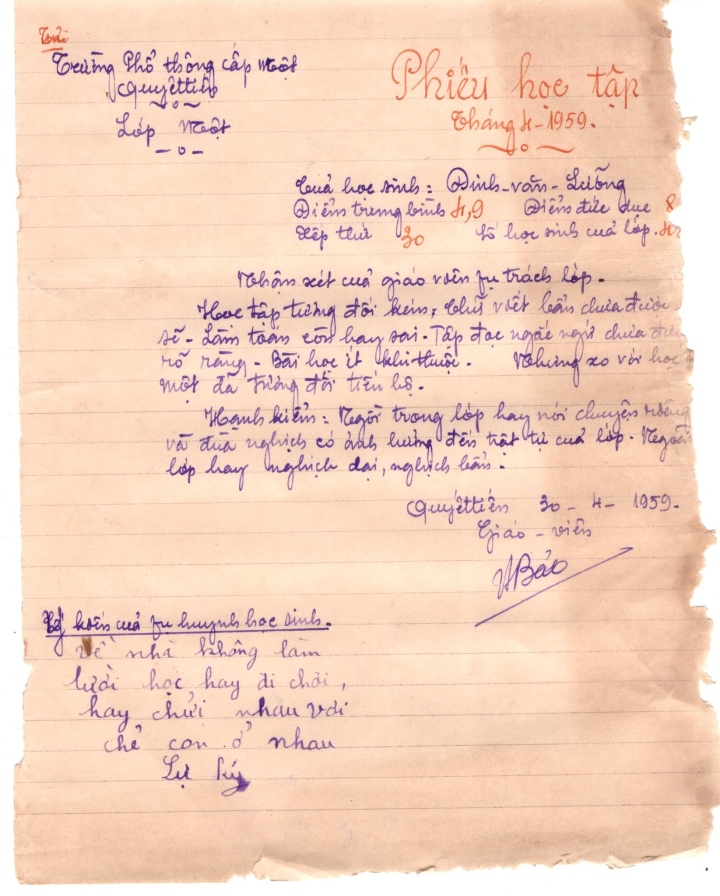 Trường Phổ thông cấp một
Quyếttiến
Lớp một
Phiếu học tập
Tháng 4-1959.
Cuả học sinh: Đinh-văn-Lưỡng
Điểm trung bình 4,9 Điểm đức dục 8
Xếp thứ 30 Số học sinh cuả lớp.
Nhận xét cuả giáo viên fụ trách lớp.
Học tập tương đối kém; Chữ viết bẩn chưa được
sẽ - Làm toán còn hay sai - Tập đọc ngắc ngứ chưa
rõ ràng - Bài học ít khi thuộc. Nhưng so với học
một đã tương đối tiến bộ.
Hạnh kiểm: Ngồi trong lớp hay nói chuyện riêng
và đuà nghịch có ảnh hưởng đến trật tự cuả lớp. Ngoài
lớp hay nghịch dại, nghịch bẩn.
Quyếttiến 30-4-1959-
Giáo-viên
VBảo
Ý kiến cuả fụ huynh học sinh.
về nhà không làm
lười học hay đi chơi,
hay chửi nhau với
chẻ con ở nhau
Lự ký